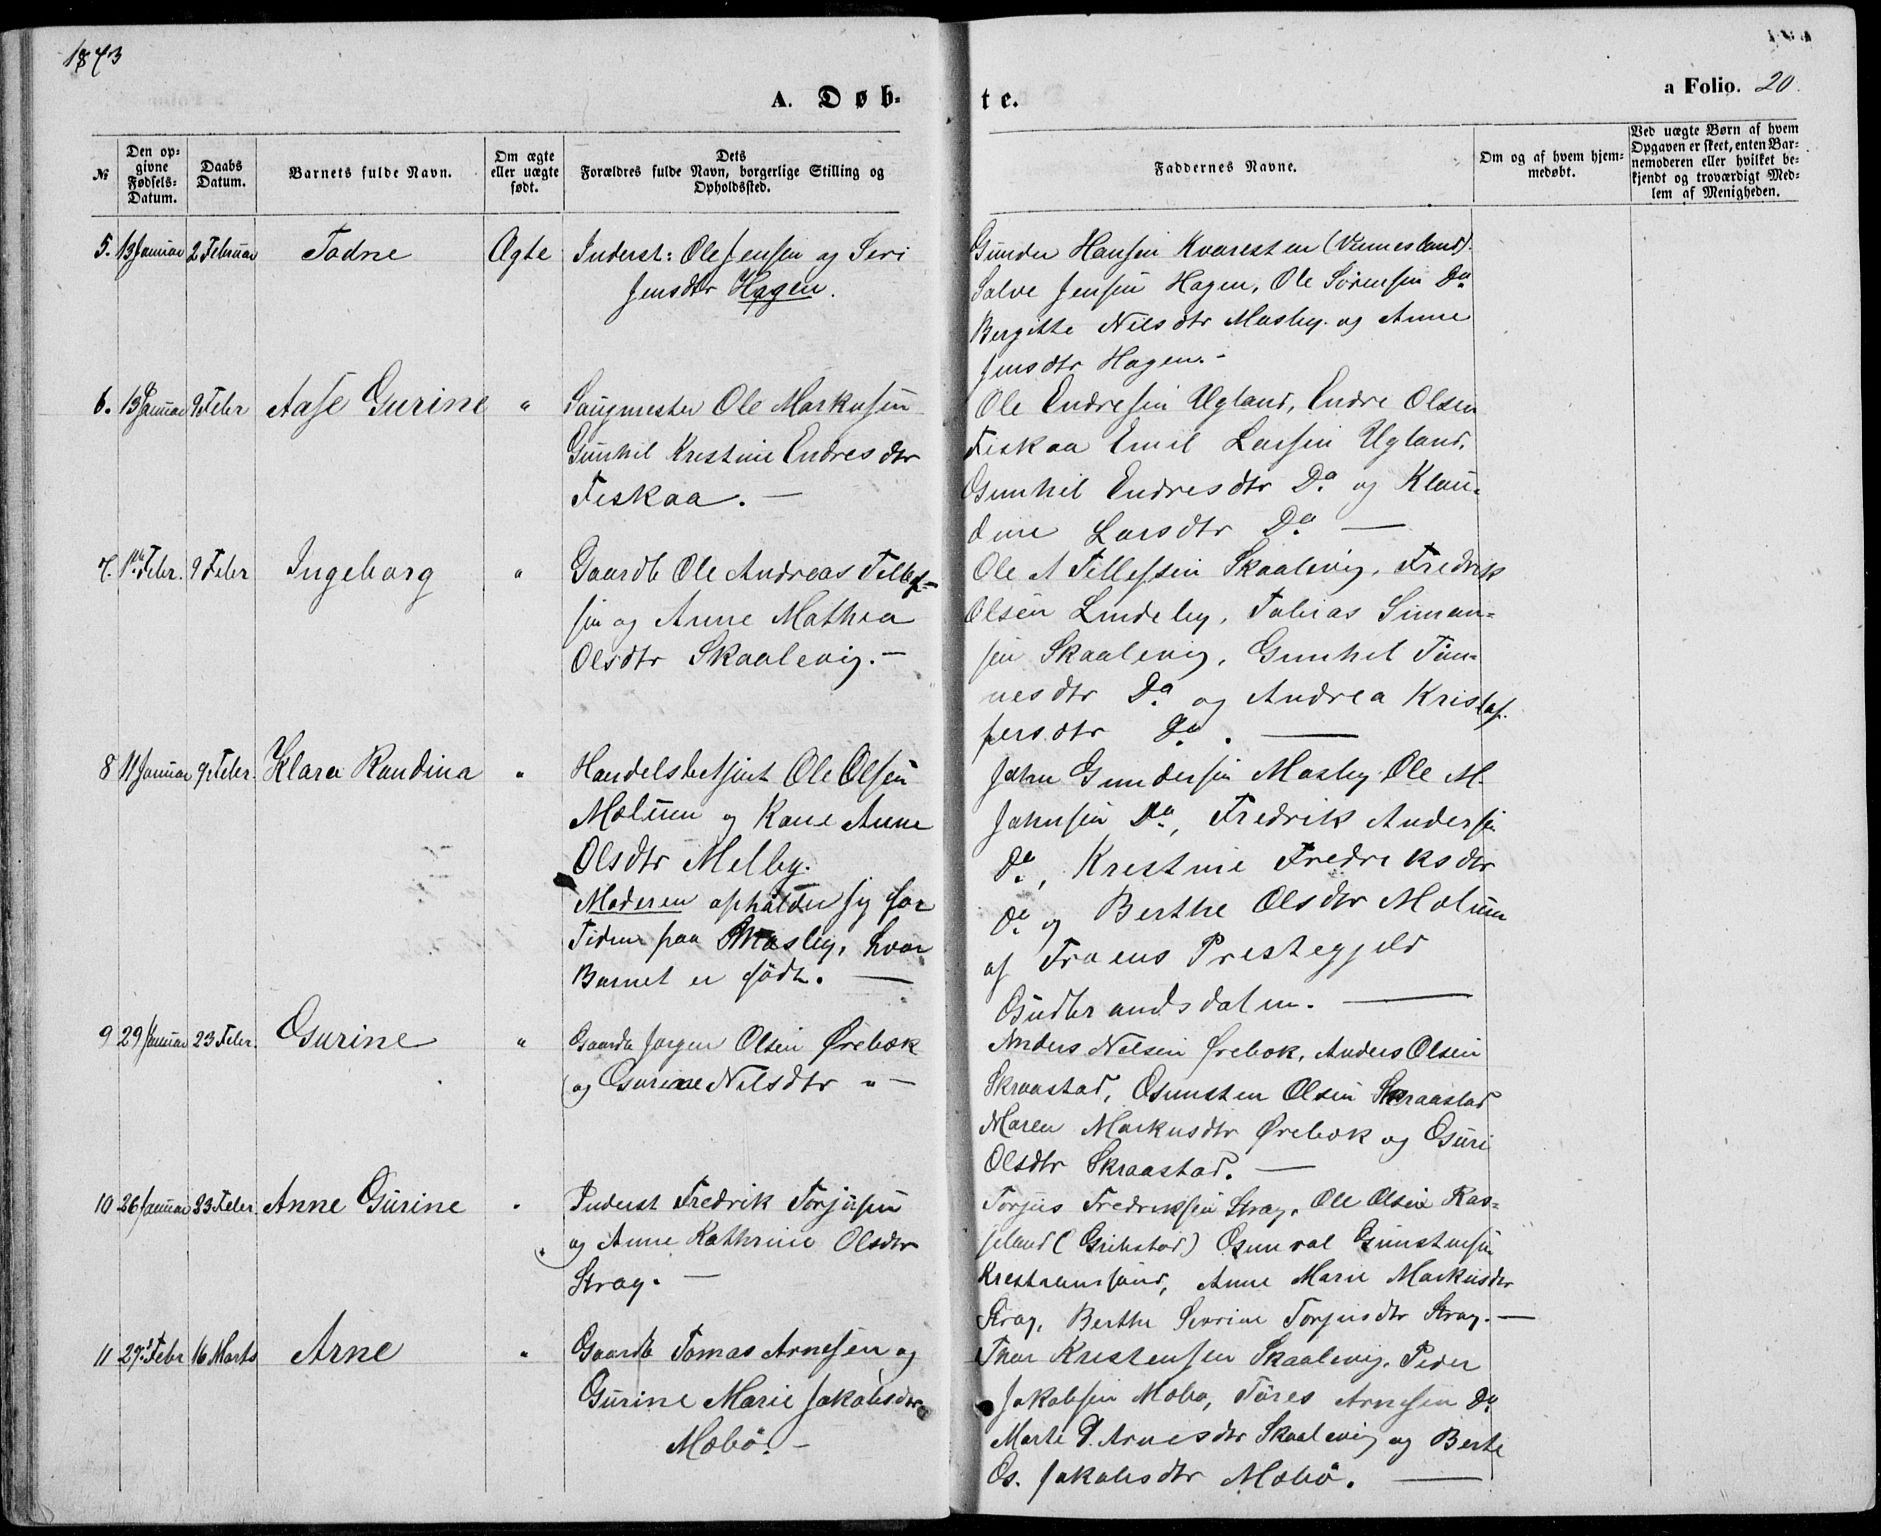 1873
A. Døb-
te.
a Folio. 20.
№
Den op-
givne
Fødsels-
Datum.
Daabs
Datum.
Barnets fulde Navn.
Om ægte
eller uægte
født.
Dets
Forældres fulde Navn, borgerlige Stilling og
Opholdssted.
Faddernes Navne.
Om og af hvem hjem-
medøbt.
Ved uægte Børn af hvem
Opgaven er skeet, enten Bar-
nemoderen eller hvilket be-
kjendt og troværdigt Med-
lem af Menigheden.
5. 13 Januar 2 Februar Tadne Ægte Inderst: Ole Jensen og Seri
Jensdtr Hagen.
Gunder Hansen Kvaresten (Vennesland).
Salve Jensen Hagen, Ole Sørensen Do
Bergitte Nilsdtr Mosby. og Anne
Jensdtr Hagen. -
6. 13 Januar 9 Febr Aase Gurine " Saugmester Ole Markusen
Gunhil Kristine Endresdtr
Fiskaa. —
Ole Endresen Ugland, Endre Olsen
Fiskaa Emil Larsen Ugland,
Gunhil Endresdtr Do og Klau-
dine Larsdtr Do —
7. 1ste Febr. 9 Febr Ingeborg " Gaardb Ole Andreas Tellef-
sen og Anne Mathea
Olsdtr Skaalevig. —
Ole A Tellefsen Skaalevig, Fredrik
Olsen Lindeby, Tobias Simon-
sen Skaalevig, Gunhil Tøn-
nesdtr Do og Andrea Kristof-
fersdtr Do. —
8 11 Januar 9 Febr. Klara Randina " Handelsbetjent Ole Olsen
Molum og Kone Anne
Olsdtr Melby.
Moderen opholder sig for
Tiden paa Mosby, hvor
Barnet er født. —
John Gundersen Mosby Ole M.
Johnsen Do, Fredrik Andersen
Do, Kristine Fredriksdtr
Do og Berthe Olsdtr Molum
af Froens Prestegjeld
Gudbrandsdalen. —
9 29 Januar 23 Febr. Gurine " Gaardb Jørgen Olsen Ørebæk
og Gurine Nilsdtr " —
Anders Nilsen Ørebæk, Anders Olsen
Skraastad, Gunsten Olsen Skraastad
Maren Markusdtr Ørebæk og Guri
Olsdtr Skraastad. —
10 26 Januar 23 Febr. Anne Gurine " Inderst Fredrik Torjusen
og Anne Kathrine Olsdtr
Strag. —
Torjus Fredriksen Strag, Ole Olsen Ros-
seland (Grimstad) Gunval Gunstensen
Kristiansand, Anne Marie Markusdtr
Strag, Berthe Severine Torjusdtr Strag. —
11 27. Febr 16 Marts Arne " Gaardb Tomas Arnesen og
Gurine Marie Jakobsdtr
Mæbø. —
Thor Kristensen Skaalevig, Peder
Jakobsen Mæbø, Tøres Arnesen Do
Marte T. Arnesdtr Skaalevig og Berte
Gs. Jakobsdtr Mæbø. —